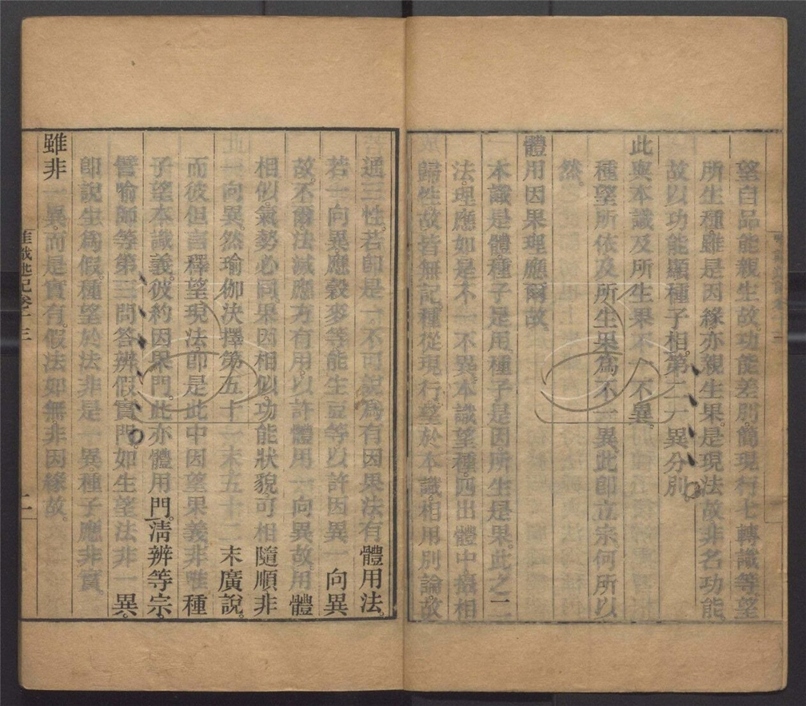 望自品能親生故功能差別簡現行七轉識等望
所生種雖是因緣亦親生果是現法故非名功能
故以功能顯種子相第二一異分別
此與本識及所生果不一不異
種望所依及所生果為不一異此即立宗何所以
然
體用因果理應爾故
本識是體種子是用種子是因所生是果此之二
法理應如是不一不異本識望種四出體中攝相
歸性故皆無記種從現行望於本識相用別論故
通三性若即是一不可說為有因果法有體用法
若一向異應穀麥等能生豆等以許因異一向異
故不爾法滅應方有用以許體用一向異故用體
相似氣勢必同果因相似功能狀貌可相隨順非
一向異然瑜伽決擇第五十一末五十二末廣說
而彼但言釋望現法即是此中因望果義非唯種
子望本識義彼約因果門此亦體用門清辨等宗
譬喻師等第三問答辨假實門如生望法非一異
即說生為假種望於法非是一異種子應非實
雖非一異而是實有假法如無非因緣故
唯識述記卷十三
二